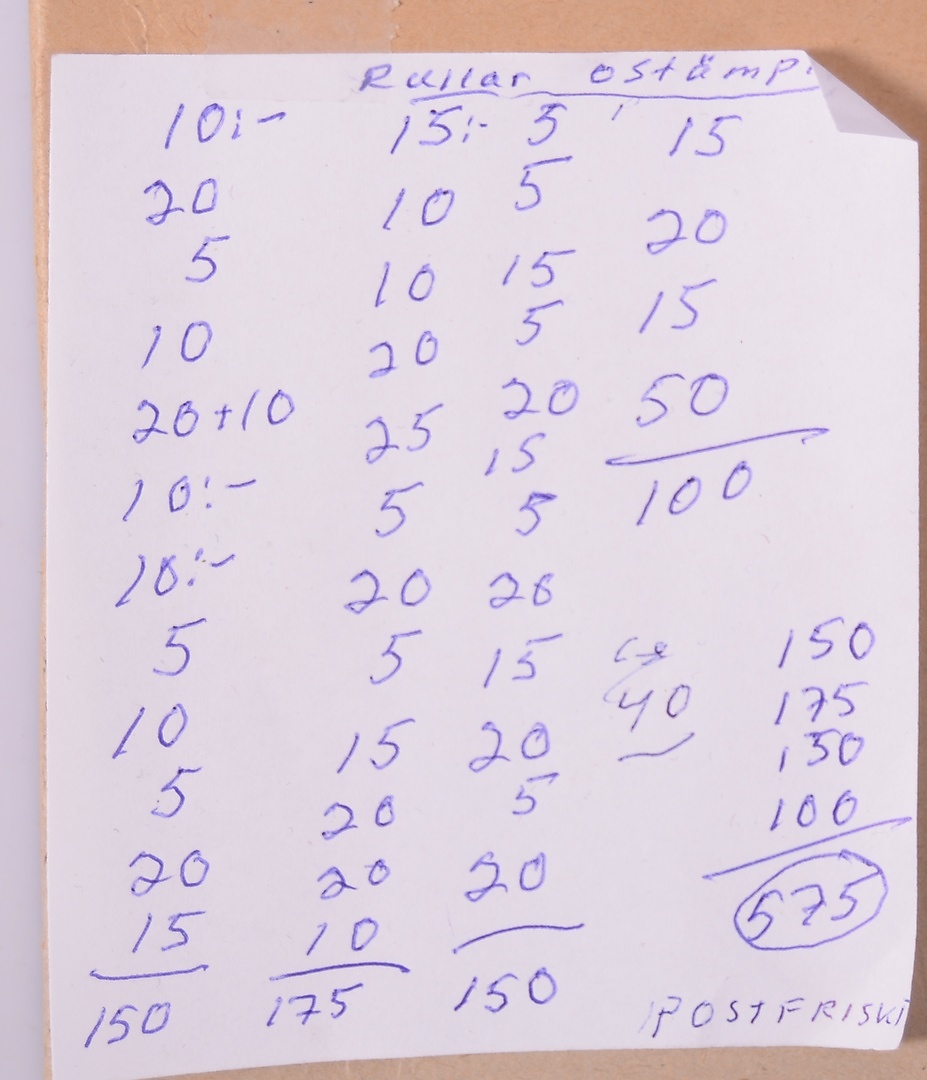 Rullar ostämp.
10:- 15:- 5 15
20 10 5 20
5 10 15 15
10 20 5 50
20+10 25 20 100
10:- 5 15
10:- 20 5
5 5 20
10 15 15
5 20 20
20 20 5
15 10 20
150 175 150
40
150
175
150
100
575
POSTFRISKT